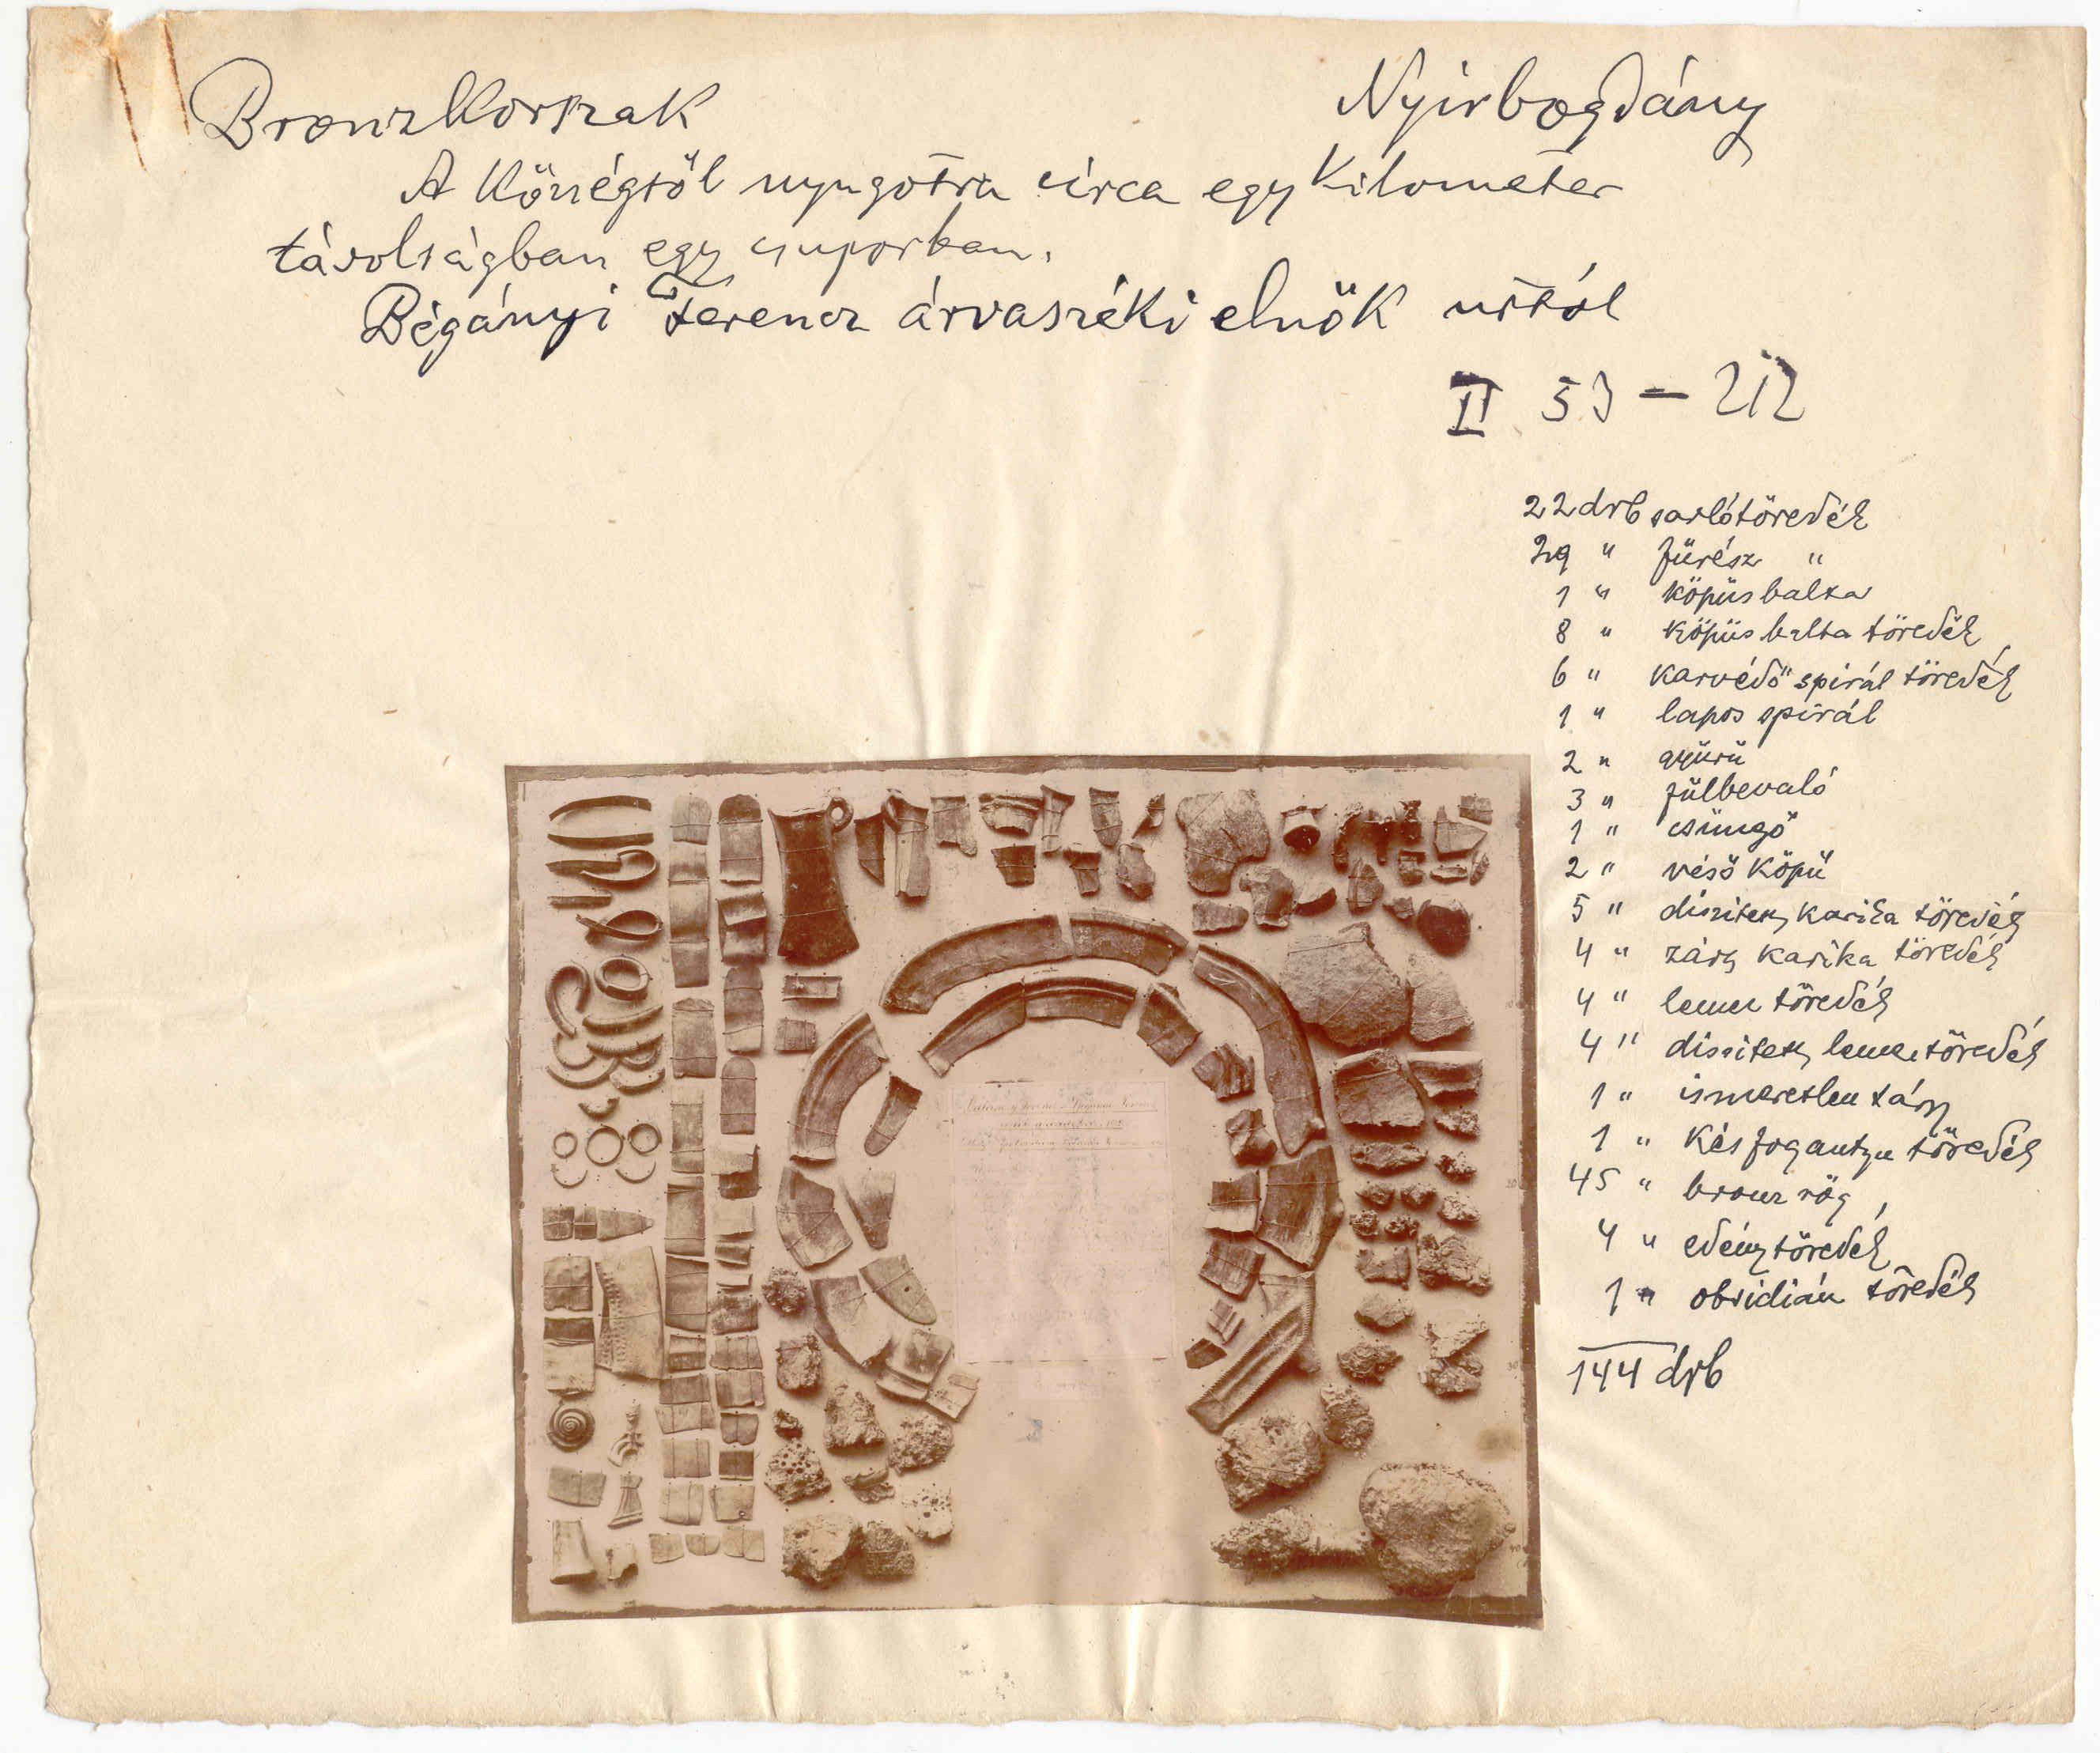 Bronzkorszak
Nyirbogdány
A Községtől nyugotra circa egy kilometer
távolságban egy csuporban.
Bégányi Ferencz árvaszéki elnök úrtól
II 53 – 212
22 drb sarlótöredék
29 " fürész "
1 " köpüs balta
8 " köpüs balta töredék
6 " karvédő spirál töredék
1 " lapos spirál
2 " gyürü
3 " fülbevaló
1 " csüngő
2 " véső köpü
5 " diszitett karika töredék
4 " zárt karika töredék
4 " lemez töredék
4 " diszitett lemez töredék
1 " ismeretlen tárgy
1 " kés fogantyu töredék
45 " bronz rög
4 " edény töredék
1 " obsidián töredék
144 drb